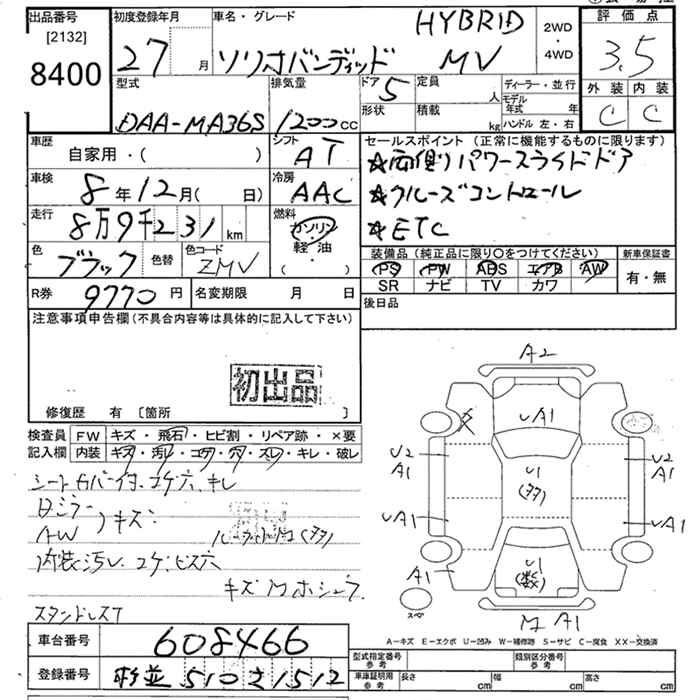 出品番号 初度登録年月 車名・グレード HYBRID 2WD・4WD 評価点
[2132]
8400 27 月 ソリオバンディッド MV 3.5
型式 排気量 ドア 5 定員 人 ディーラー・並行 外装 内装
DAA-MA36S 1200cc 形状 積載 kg モデル年式 年 C C
ハンドル 左・右
車歴 自家用・( ) シフト AT セールスポイント(正常に機能するものに限ります)
☆両側パワースライドドア
車検 8年12月( 日) 冷房 AAC ☆クルーズコントロール
走行 8万9千231km 燃料 ガソリン・軽油・( ) ☆ETC
色 ブラック 色替 色コード ZMV 装備品(純正品に限り○をつけてください) 新車保証書
PS PW ABS エアB AW 有・無
SR ナビ TV カワ
R券 9770円 名変期限 月 日 後日品
注意事項申告欄(不具合内容等は具体的に記入して下さい)
初出品
修復歴 有 [箇所 ]
検査員 FW キズ・飛石・ヒビ割・リペア跡・×要
記入欄 内装 キズ・汚れ・コゲ・穴・スレ・キレ・破レ
A2
UA1
U2 A1
U1
U2 A1
UA1
UA1
A1
U1
A1
スペア
A1
キズ
AW
スタンドレスT
A-キズ E-エクボ U-凹み W-補修跡 S-サビ C-腐食 XX-交換済
車台番号 608466 型式指定番号 参考 類別区分番号 参考
登録番号 510 1512 車庫証明用 参考 長さ cm 幅 cm 高さ cm